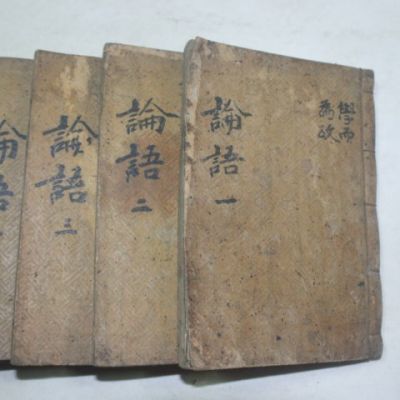 學而
為政
論語 一
論語 二
論語 三
論語